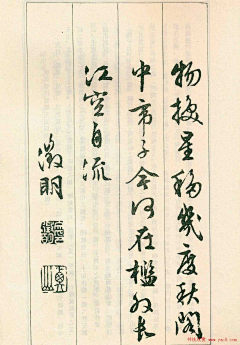 物换星移几度秋阁
中帝子今何在槛外长
江空自流
徵明